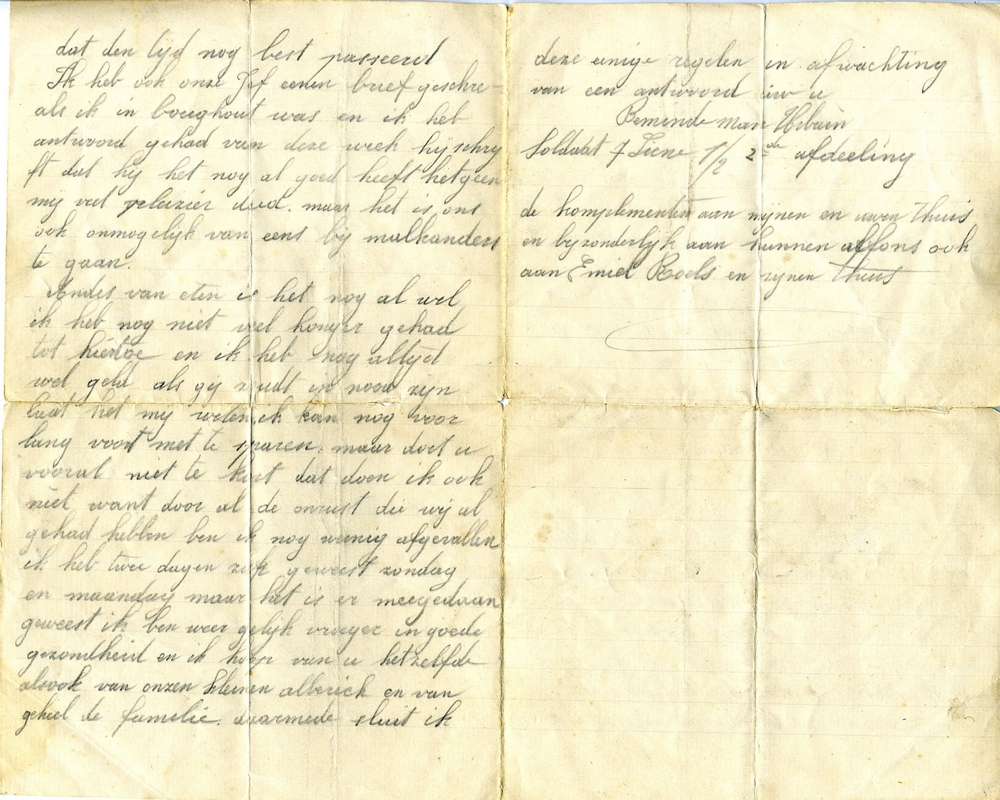 dat den tijd nog best passeerd
Ik heb ook onze Jef eenen brief geschre-
als ik in boughout was en ik heb
antwoord gehad van deze week hij schry
ft dat hij het nog al goed heeft hetgeen
mij veel pleizier deed. maar het is ons
ook onmogelijk van eens bij malkanders
te gaan.
Andes van eten is het nog al wel
ik heb nog niet veel honger gehad
tot hiertoe en ik heb nog altyd
wel geld als gy zoudt in nood zijn
laat het mij weten, ik kan nog voor
lang voort met te sparen. maar doet u
vooral niet te kort dat doen ik ook
niet want door al de onrust die wij al
gehad hebben ben ik nog weinig afgevallen
ik heb twee dagen ziek geweest zondag
en maandag maar het is er meegedaan
geweest ik ben weer gelijk vroeger in goede
gezondheid en ik hoop van u hetzelfde
alsook van onzen kleinen alberick en van
geheel de familie. daarmede sluit ik
deze einige regelen in afwachting
van een antwoord uw u
Beminde man Urbain
Soldaat 7 Linie 1/2 2de afdeeling
de komplementen aan mijnen en uwen thuis
en byzonderlyk aan hunnen alfons ook
aan Emiel Roels en zijnen thuis